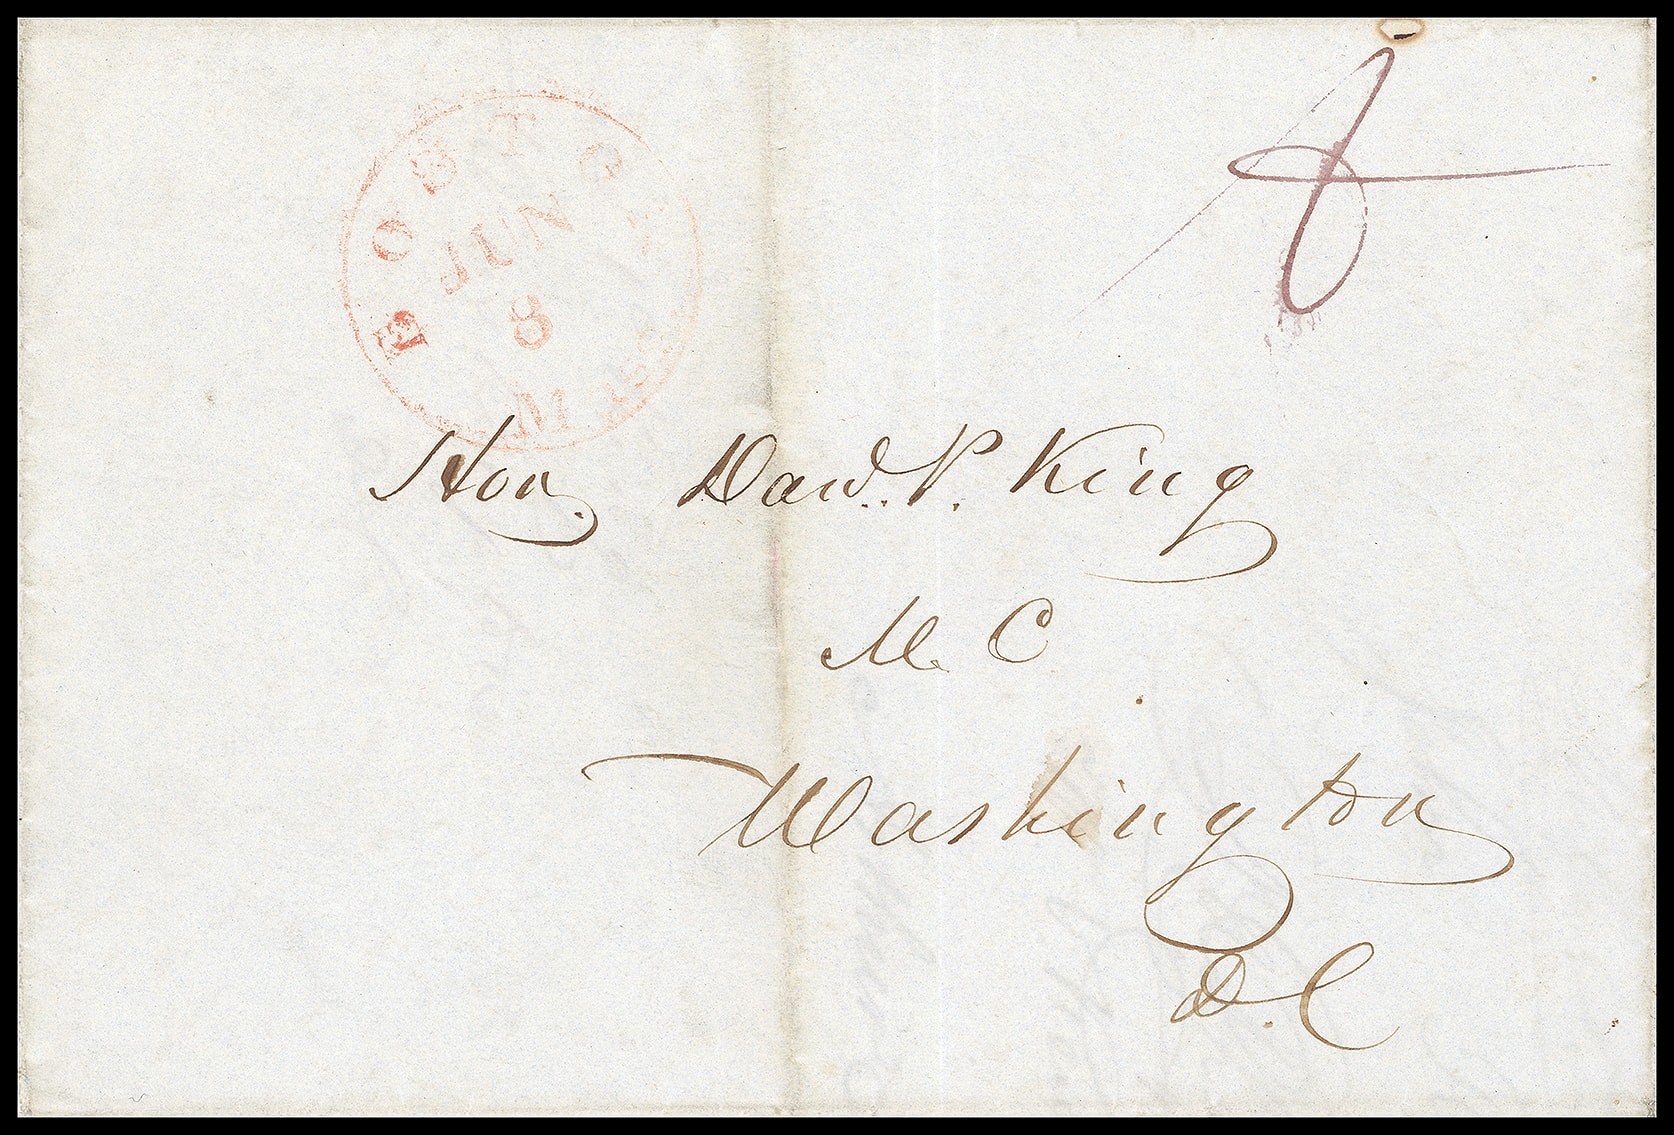 BOSTON
JUN
8
Mass
Hon. Danl. P. King
M. C
Washington
D. C